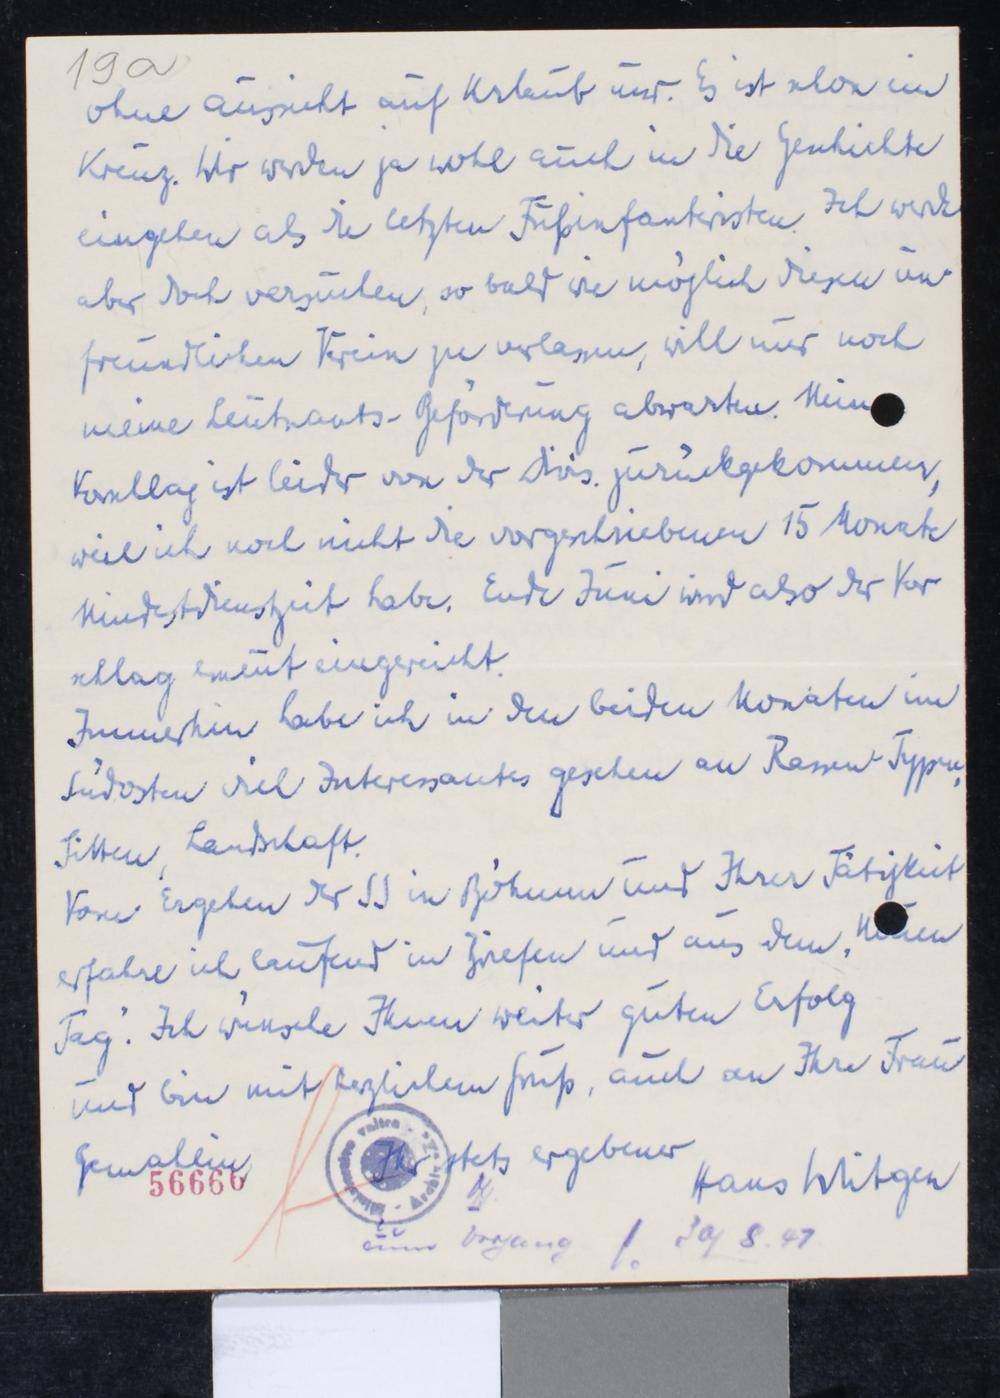 19a
ohne Aussicht auf Urlaub usw. Es ist schon ein
Kreuz. Wir werden ja wohl auch in die Geschichte
eingehen als die letzten Fußinfanteristen. Ich werde
aber doch versuchen, so bald wie möglich diesen un-
freundlichen Verein zu verlassen, will nur noch
meine Leutnants-Beförderung abwarten. Mein
Vorschlag ist leider von der Divis. zurückgekommen,
weil ich noch nicht die vorgeschriebenen 15 Monate
Mindestdienstzeit habe. Ende Juni wird also der Vor
schlag erneut eingereicht.
Immerhin habe ich in den beiden Monaten im
Südosten viel Interessantes gesehen an Rassen-Typen,
Sitten, Landschaft.
Vom Ergehen der SS in Böhmen und Ihrer Tätigkeit
erfahre ich laufend in Briefen und aus dem „Neuen
Tag". Ich wünsche Ihnen weiter guten Erfolg
und bin mit herzlichem Gruß, auch an Ihre Frau
Gemahlin
Ihr stets ergebener
Hans Witgen
56666
zum Vorgang
8.41